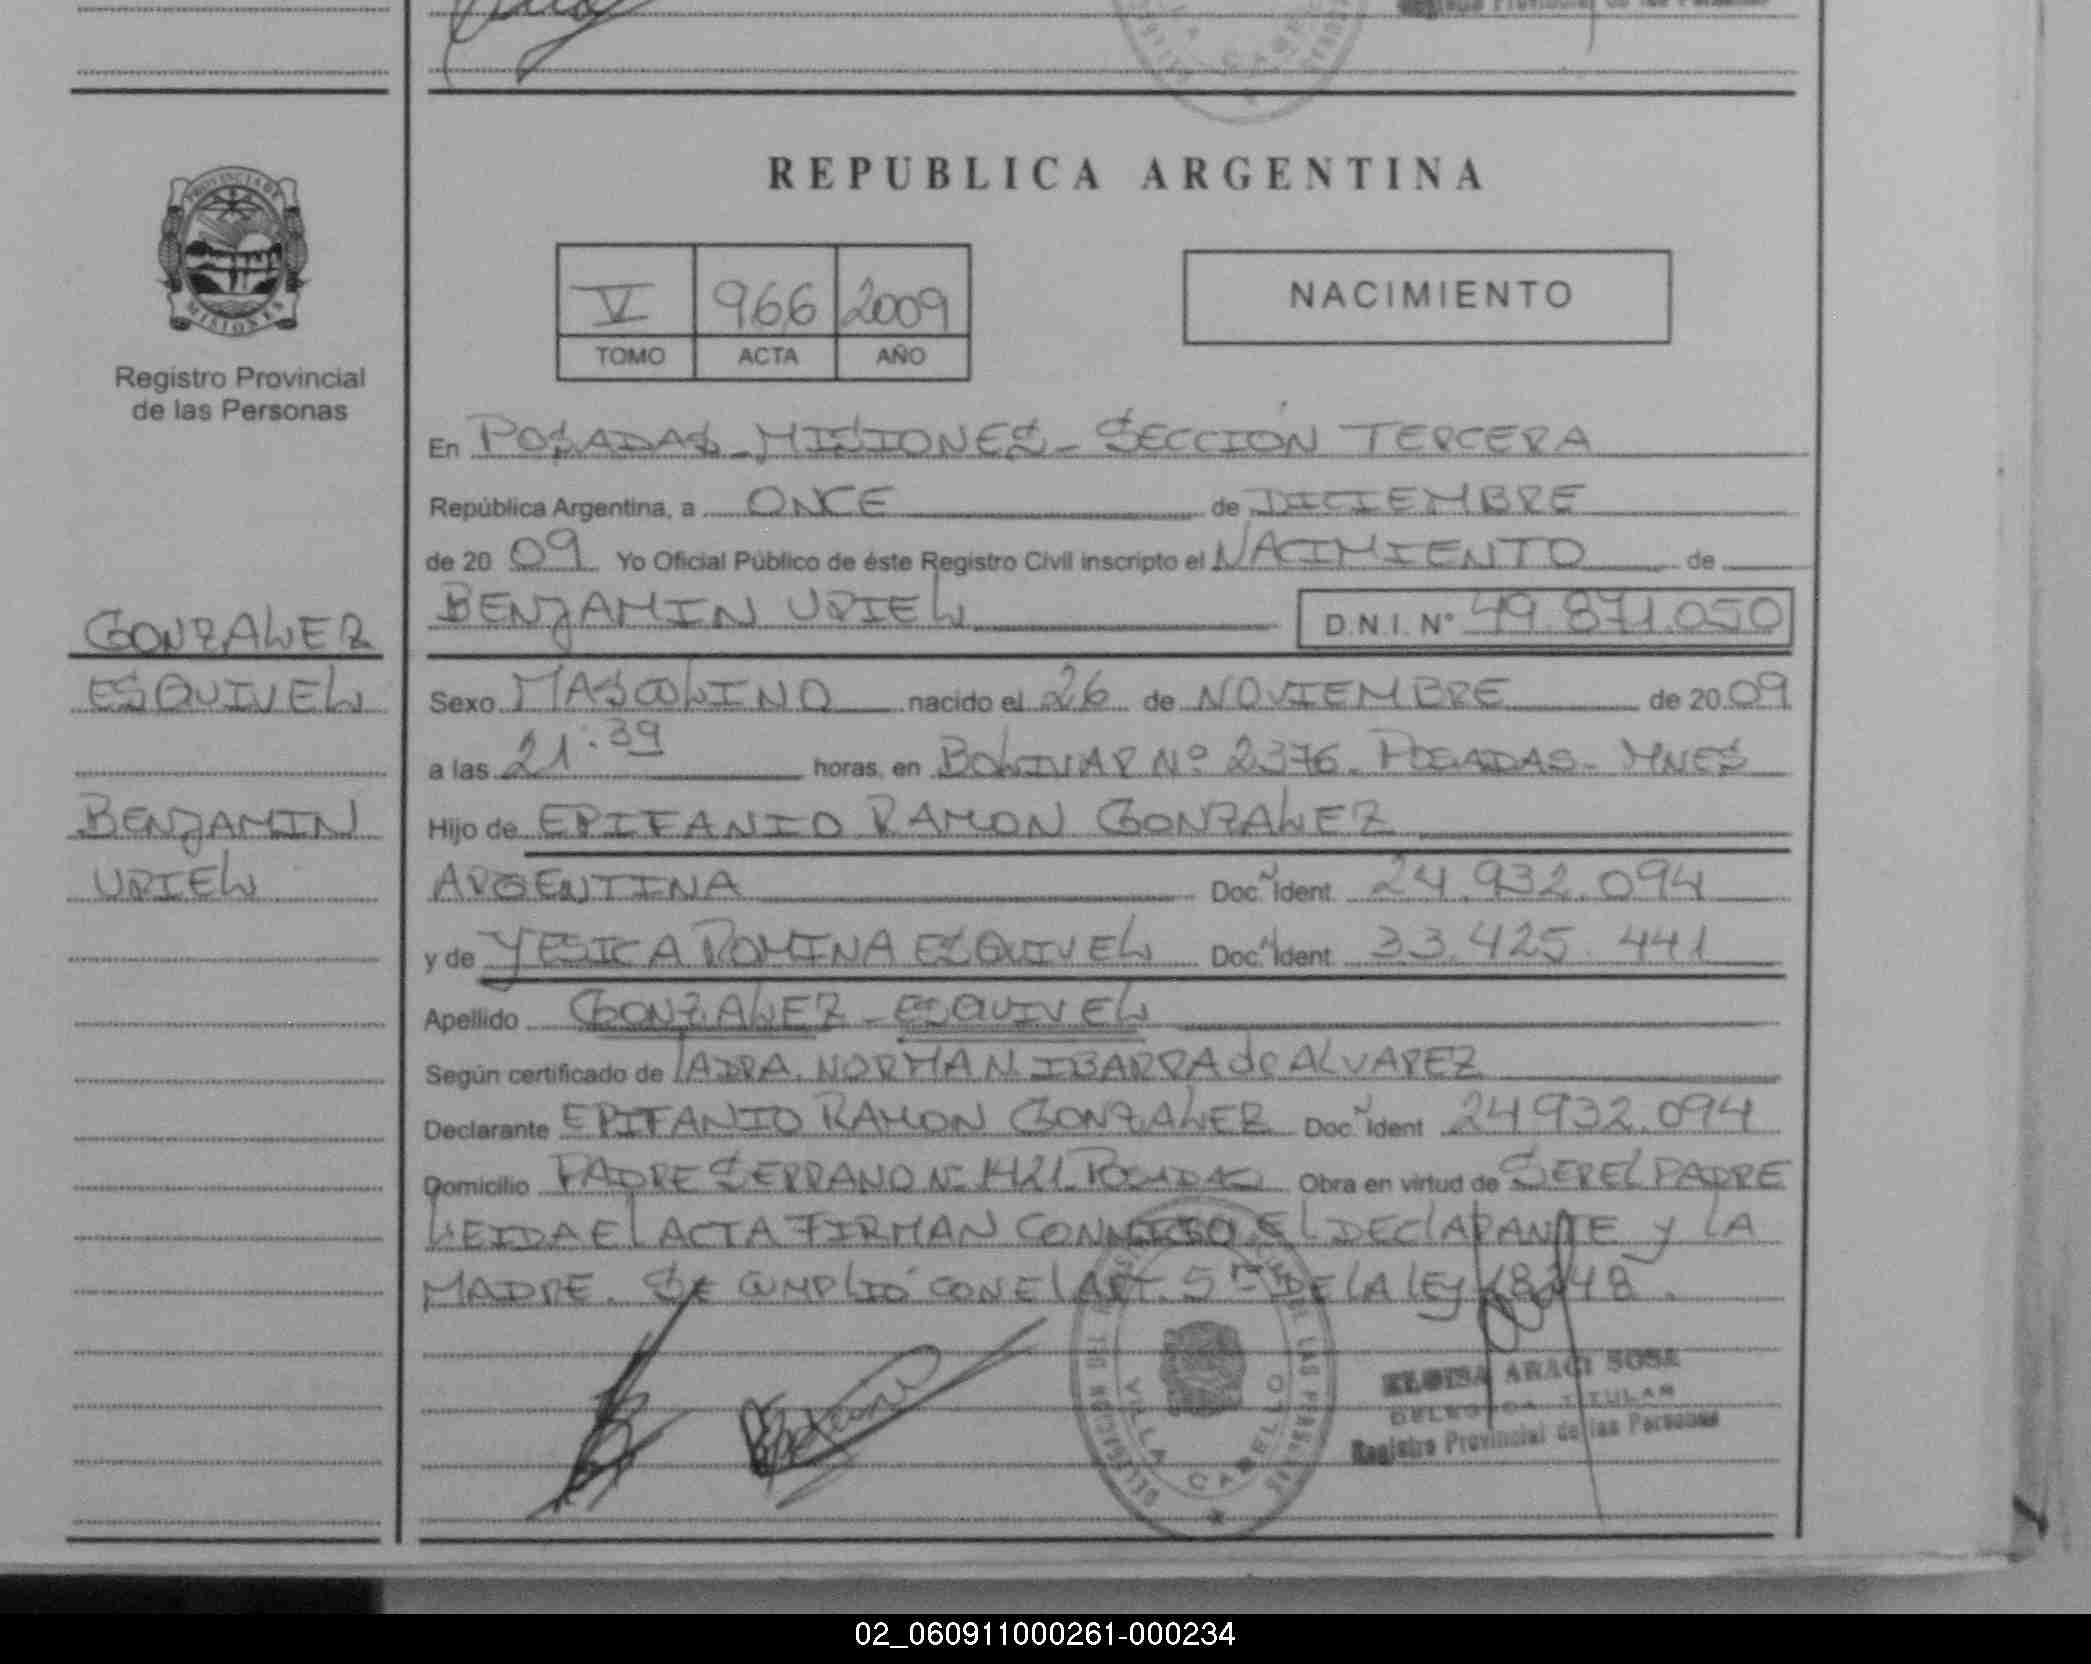 REPUBLICA ARGENTINA
PROVINCIA DE
MISIONES
V 966 2009
TOMO ACTA AÑO
NACIMIENTO
Registro Provincial
de las Personas
En POSADAS - MISIONES - SECCIÓN TERCERA
República Argentina, a ONCE de DICIEMBRE
de 20 09 Yo Oficial Público de éste Registro Civil inscripto el NACIMIENTO de
BENJAMIN URIEL D.N.I. N° 49.871.050
GONZALEZ
ESQUIVEL
BENJAMIN
URIEL
Sexo MASCULINO nacido el 26 de NOVIEMBRE de 20 09
a las 21:39 horas, en BOLIVAR Nº 2376. POSADAS - MNES
Hijo de EPIFANIO RAMON GONZALEZ
ARGENTINA Doc. Ident. 24.932.094
y de YESICA ROMINA ESQUIVEL Doc. Ident. 33.425.441
Apellido GONZALEZ - ESQUIVEL
Según certificado de LA DRA. NORMA N. IBARRA de ALVAREZ
Declarante EPIFANIO RAMON GONZALEZ Doc. Ident 24932.094
Domicilio PADRE SERRANO Nº 1421. POSADAS Obra en virtud de SER EL PADRE
LEIDA El ACTA FIRMAN CONMIGO El DEClARANTE y LA
MADRE. SE CUMPLIÓ CON El ART. 5º DE LA LEY 18248.
VILLA CABELLO
ELOISA ARACI SOSA
DELEGADA TITULAR
Registro Provincial de las Personas
02_060911000261-000234